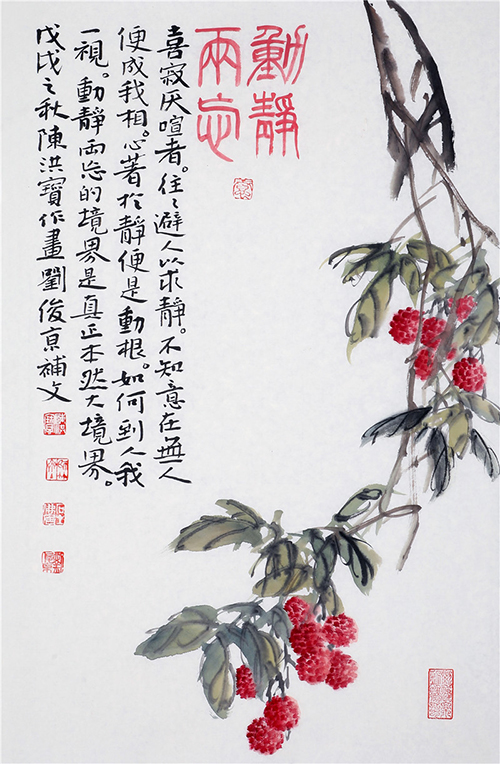 動靜
兩忘
喜寂厌喧者。往々避人以求靜。不知意在無人
便成我相。心著於靜便是動根。如何到人我
一視。動靜兩忘的境界是真正本然大境界。
戊戌之秋陳洪寶作畫劉俊京補文